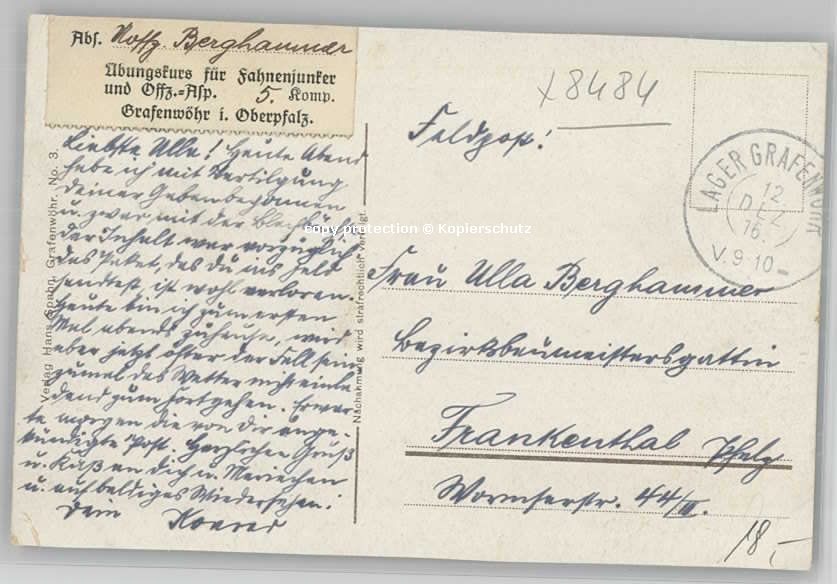 Abs. Uoffz. Berghammer
Übungskurs für Fahnenjunker
und Offz.=Asp. 5. Komp.
Grafenwöhr i. Oberpfalz.
Liebste Ulla! Heute Abend
habe ich mit Vertilgung
deiner Gaben begonnen
u. zwar mit der
der Inhalt war vorzüglich
das Paket, das du ins Feld
sandtest, ist wohl verloren.
Heute bin ich zum ersten
Mal abends zuhause, wird
aber jetzt öfter der Fall sein
zumal das Wetter nicht einla
dend zum fortgehen. Erwar
te morgen die von dir ange-
kündigte Post. Herzlichen Gruß
u. Kuß an dich u. Mariechen
u. auf baldiges Wiedersehen!
dein Konrad
Verlag Hans Spahn, Grafenwöhr. No. 3.
Nachahmung wird strafrechtlich verfolgt.
x8484
Feldpost!
LAGER GRAFENWÖHR
12.
DEZ.
16
V. 9-10
Frau Ulla Berghammer
Bezirksbaumeistersgattin
Frankenthal Pfalz
Wormserstr. 44/III.
18,-
copy protection © Kopierschutz